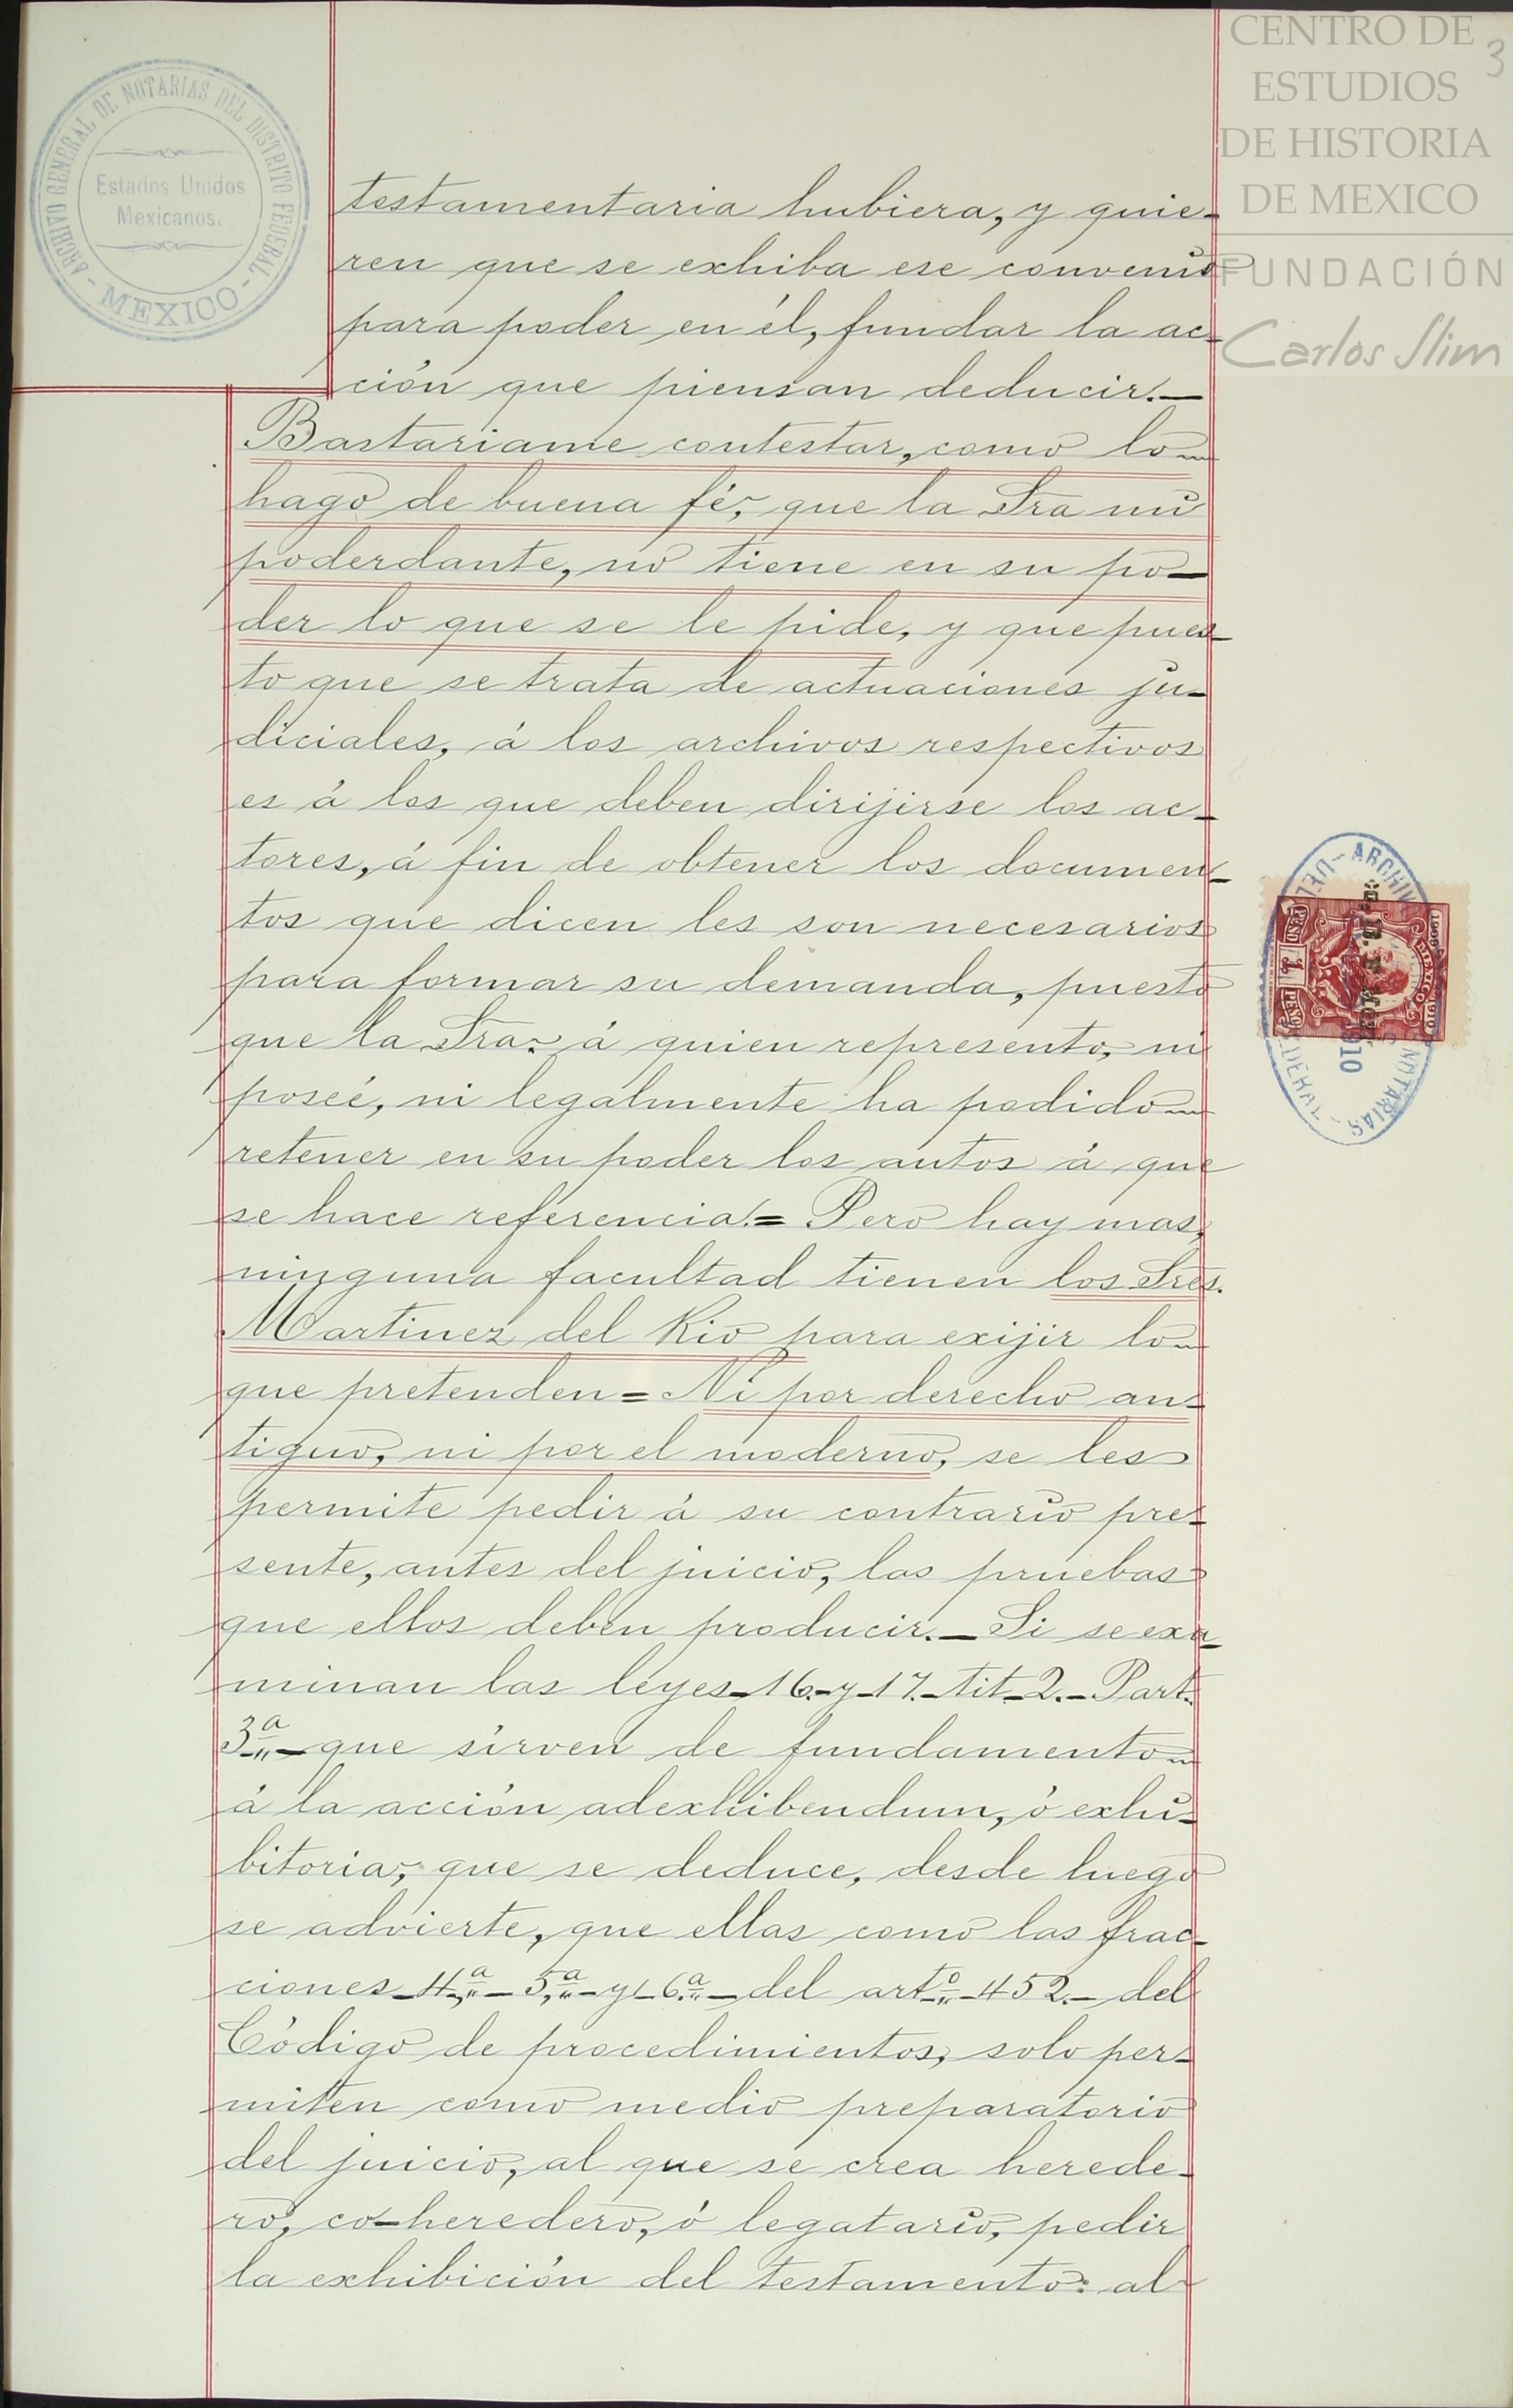 CENTRO DE
ESTUDIOS
DE HISTORIA
DE MEXICO
FUNDACIÓN
Carlos Slim
3
ARCHIVO GENERAL DE NOTARIAS DEL DISTRITO FEDERAL
- MEXICO -
Estados Unidos
Mexicanos.
testamentaria hubiera, y quie-
ren que se exhiba ese convenio
para poder en él, fundar la ac-
ción que piensan deducir.—
Bastariame contestar, como lo
hago de buena fé, que la Sra mi
poderdante, no tiene en su po-
der lo que se le pide, y que pues-
to que se trata de actuaciones ju-
diciales, á los archivos respectivos
es á los que deben dirijirse los ac-
tores, á fin de obtener los documen-
tos que dicen les son necesarios
para formar su demanda, puesto
que la Sra. á quien represento, ni
poseé, ni legalmente ha podido
retener en su poder los autos á que
se hace referencia.= Pero hay mas,
ninguna facultad tienen los Sres.
Martinez del Rio para exijir lo
que pretenden = Ni por derecho an-
tiguo, ni por el moderno, se les
permite pedir á su contrario pre-
sente, antes del juicio, las pruebas
que ellos deben producir.— Si se exa-
minan las leyes-16.-y-17.-tit-2.-Part.
3ª-que sirven de fundamento
á la acción adexhibendum, ó exhi-
bitoria, que se deduce, desde luego
se advierte, que ellas como las frac-
ciones-4ª-5ª-y-6ª-del artº-452.-del
Código de procedimientos, solo per-
miten como medio preparatorio
del juicio, al que se crea herede-
ro, co-heredero, ó legatario, pedir
la exhibición del testamento: al
1 PESO
MEXICO
1910
ARCHIV
NOTARIAS